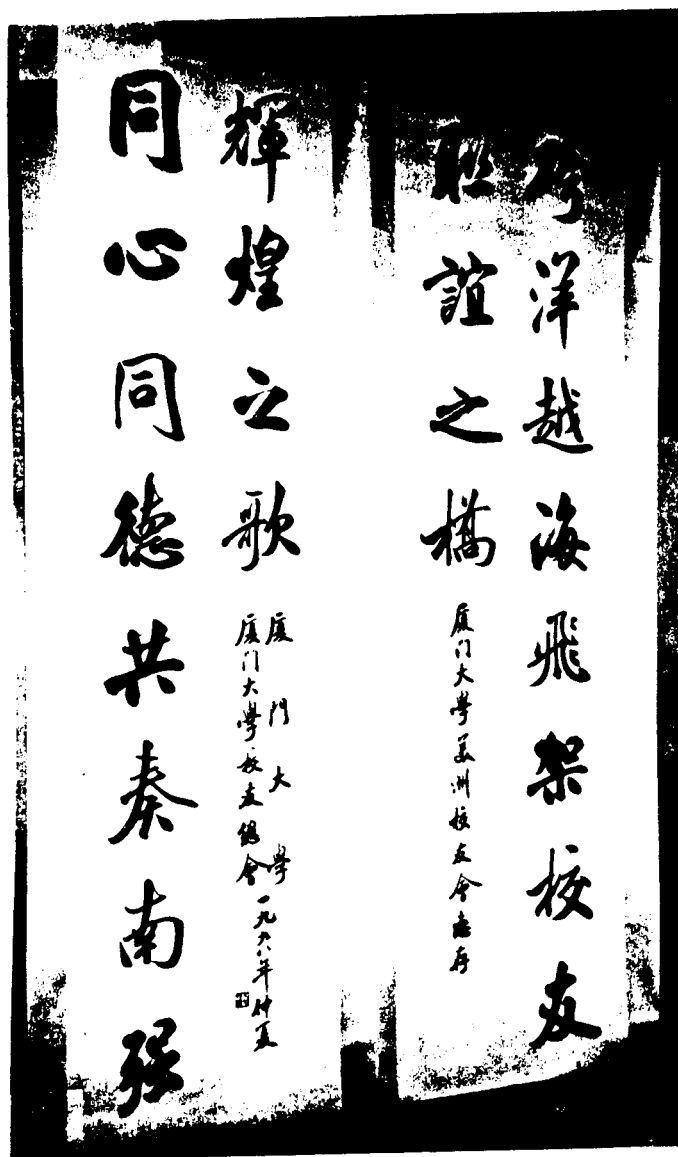 跨洋越海飛架校友
聯誼之橋
厦门大學美洲校友會惠存
同心同德共奏南强
輝煌之歌
厦門大學
厦门大學校友總會
一九九八年仲夏